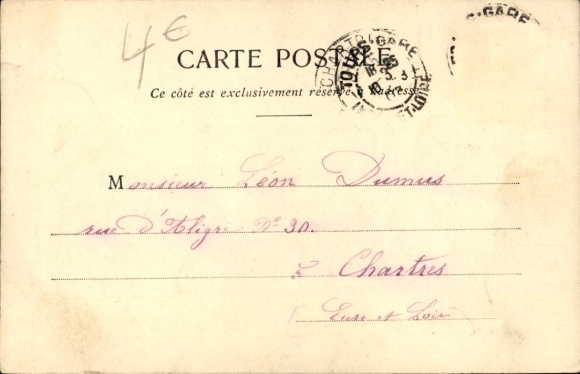 4€
CARTE POSTALE
Ce côté est exclusivement réservé à l'adresse
CHARTRES-GARE
S-GARE
Monsieur Léon Dumus
rue d'Aligre Nº 30.
à Chartres
Eure et Loir